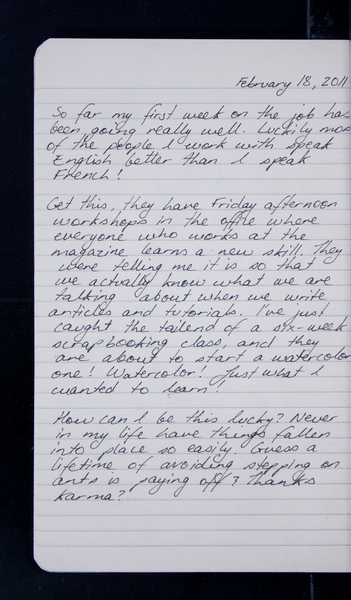 February 18, 2011
So far my first week on the job has
been going really well. Luckily most
of the people I work with speak
English better than I speak
French!
Get this, they have Friday afternoon
workshops in the office where
everyone who works at the
magazine learns a new skill. They
were telling me it is so that
we actually know what we are
talking about when we write
articles and tutorials. I've just
caught the tail end of a six-week
scrapbooking class, and they
are about to start a watercolor
one! Watercolor! Just what I
wanted to learn!
How can I be this lucky? Never
in my life have things fallen
into place so easily. Guess a
lifetime of avoiding stepping on
ants is paying off? Thanks
Karma?